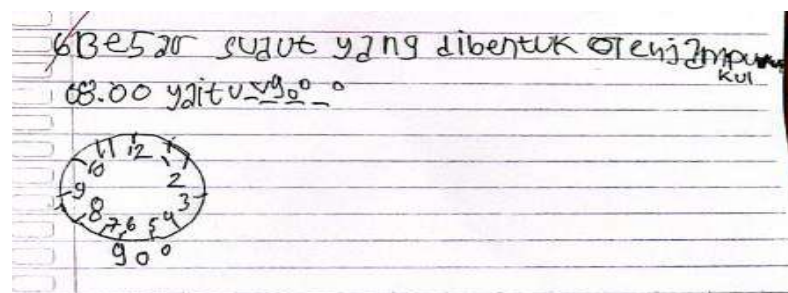 6 Besar sudut yang dibentuk oleh jam pukul
08.00 yaitu 90°
11 12 1
10 2
9 3
8 4
7 6 5
90°